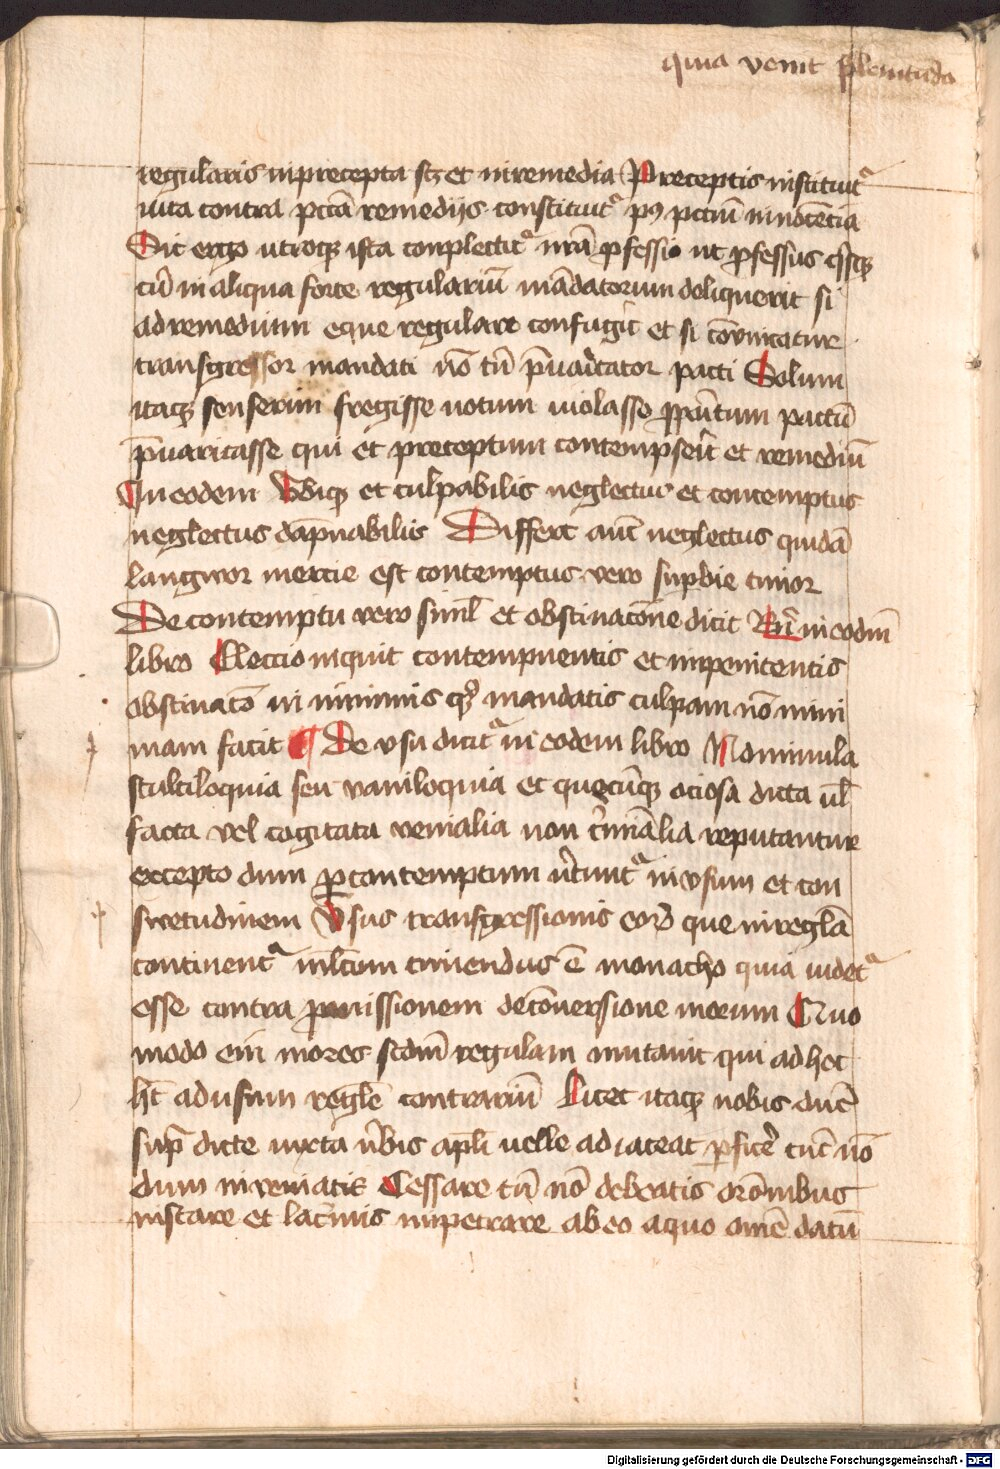 quia venit plenitudo
regularis in precepta scz et in remedia Preceptis instituit᷑
uita contra pctā remedijs constituit᷑ pꝰ pctm̄ innocētia
Sic ergo utrosqꝫ ista complectit᷑ nrā ꝓfessio ut ꝓfessus qͥsqꝫ
cū in aliqua forte regulariū mādatorum deliquerit si
ad remedium eque regulare confugit et si cōvincatur
transgressor mandati nō tn̄ p̄uaricator pacti Solum
itaqꝫ senserim fregisse uotum uiolasse pactū
p̄uaricasse qui et preceptum contempserit et remediū
In eodem Vbiqꝫ et culpabilis neglectus et contemptus
neglectus dāpnabilis Differt aut̄ neglectus quidā
langwor inercie est contemptus vero supbie tumor
De contemptu vero siml̄ et obstinacōne dicit in eodm̄
libro Eleccio inquit contempnentis et inpenitentis
obstinatō in minimis qͣꝫ mandatis culpam nō mini
mam facit De vsu dicit᷑ in eodem libro Nominula
stultiloquia seu vaniloquia et quecūqꝫ ociosa dicta ul̄
facta vel cogitata venialia non criminalia reputantur
excepto dum ꝑ contemptum u̓tunt᷑ in vsum et con
swetudinem Vsus transgressionis eoꝝ que in regl̄a
continent᷑ ml̄tum timendus ē monacho quia uidet᷑
esse contra ꝓmissionem de cōuersione morum Quo
modo eni mores scdm̄ regulam mutauit qui adhec
ht̄ ad usum regl̄e contrariū Licet itaqꝫ nobis
sup̄ dicte iuxta u̓bis apl̄i uelle adiaceat ꝑfice̓ nō
dum inveniatis Cessare tn̄ nō debeatis orōnibus
instare et lac̓mis impetrare ab eo a quo omē datū
Digitalisierung gefördert durch die Deutsche Forschungsgemeinschaft - DFG